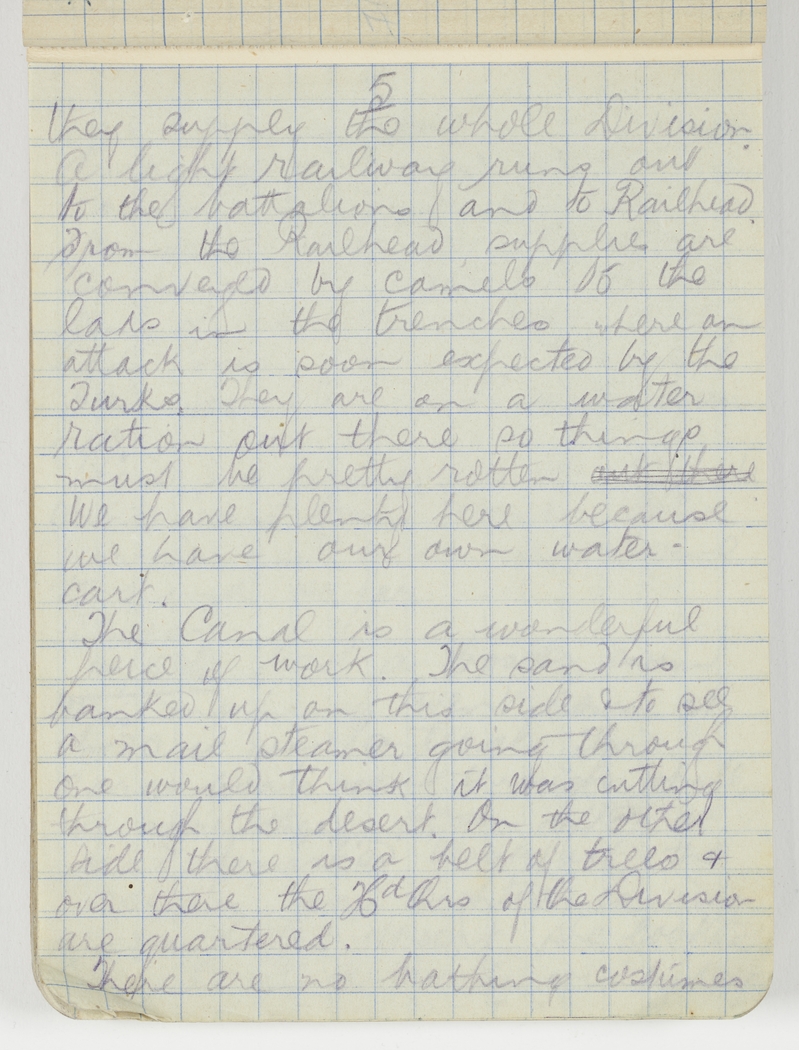 5
they supply the whole Division.
A light railway runs out
to the battalions and to Railhead.
From the Railhead supplies are
conveyed by camels to the
lads in the trenches where an
attack is soon expected by the
Turks. They are on a water
ration out there so things
must be pretty rotten out there
We have plenty here because
we have our own water-
cart.
The Canal is a wonderful
peice of work. The sand is
banked up on this side & to see
a mail steamer going through
one would think it was cutting
through the desert. On the other
side there is a belt of trees &
over there the Hd Qrs of the Division
are quartered.
There are no bathing costumes